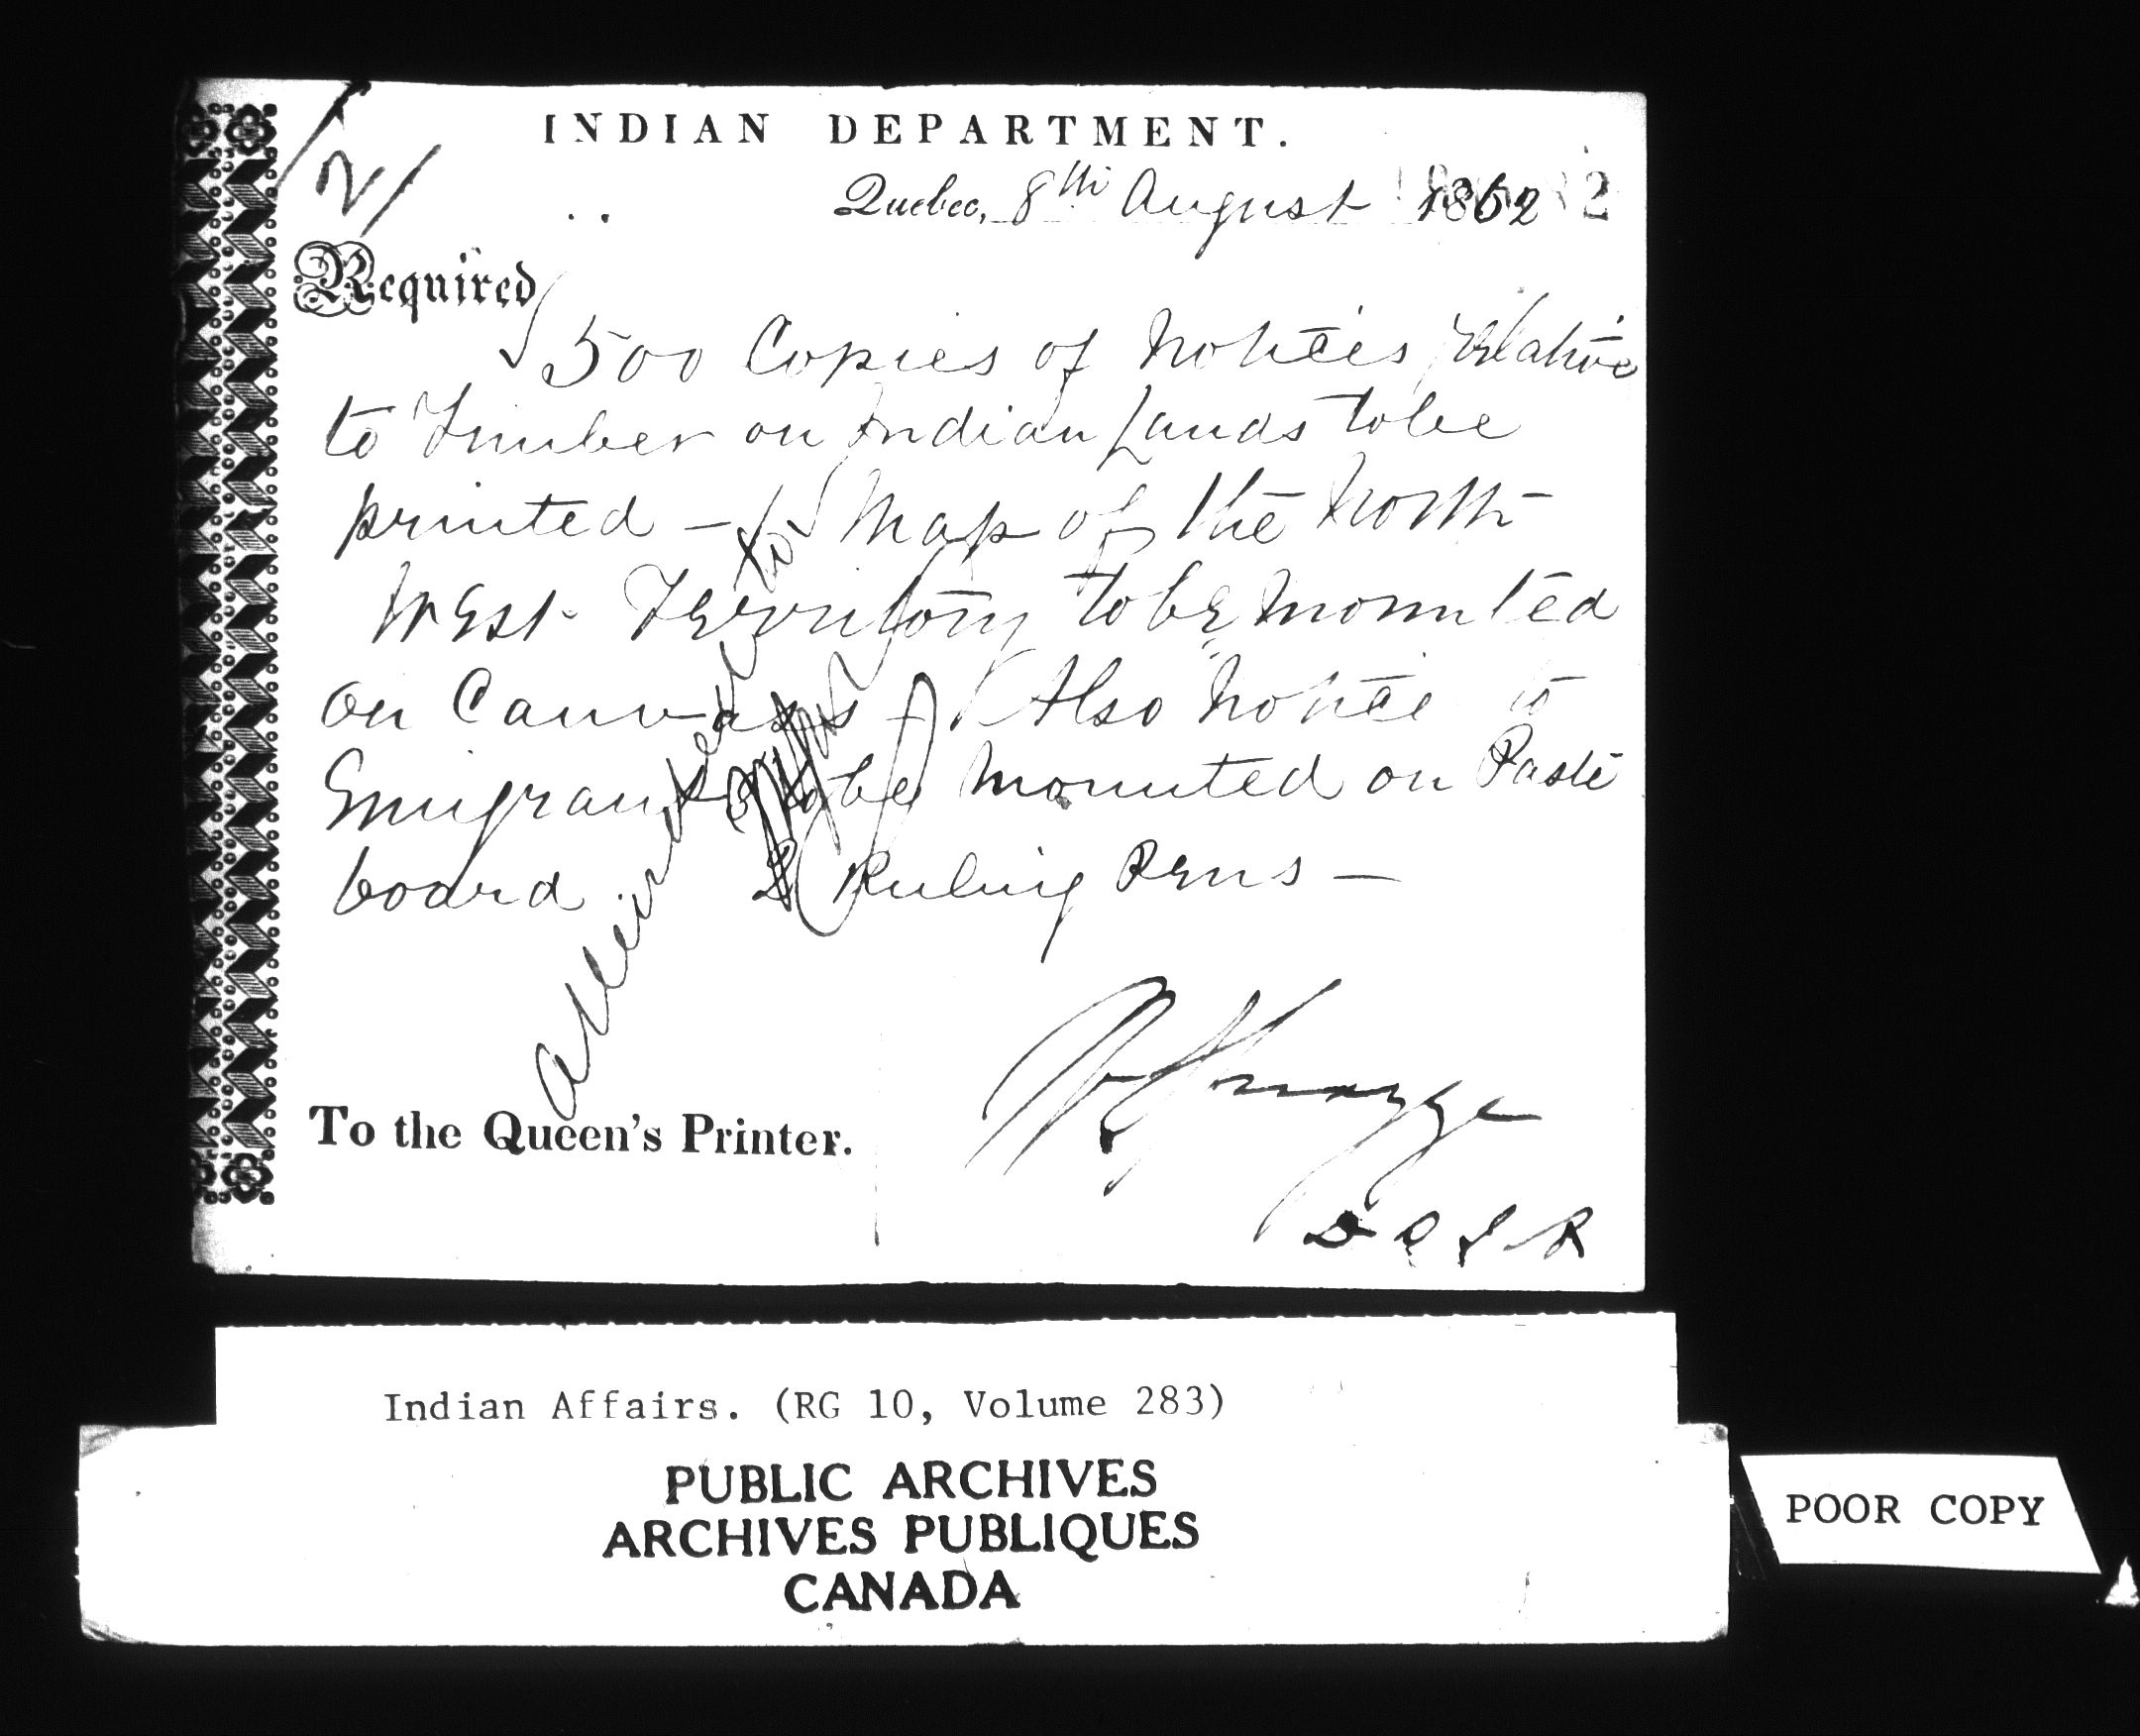 INDIAN DEPARTMENT.
2/
Quebec, 8th August 1862
Required
500 Copies of Notices relative
to Timber on Indian Lands to be
printed – Map of the North
West Territory to be mounted
on Canvass – Also Notice to
Emigrants to be mounted on Paste
board. 2 Ruling Pens –
attended to
To the Queen's Printer.
Indian Affairs. (RG 10, Volume 283)
PUBLIC ARCHIVES
ARCHIVES PUBLIQUES
CANADA
POOR COPY